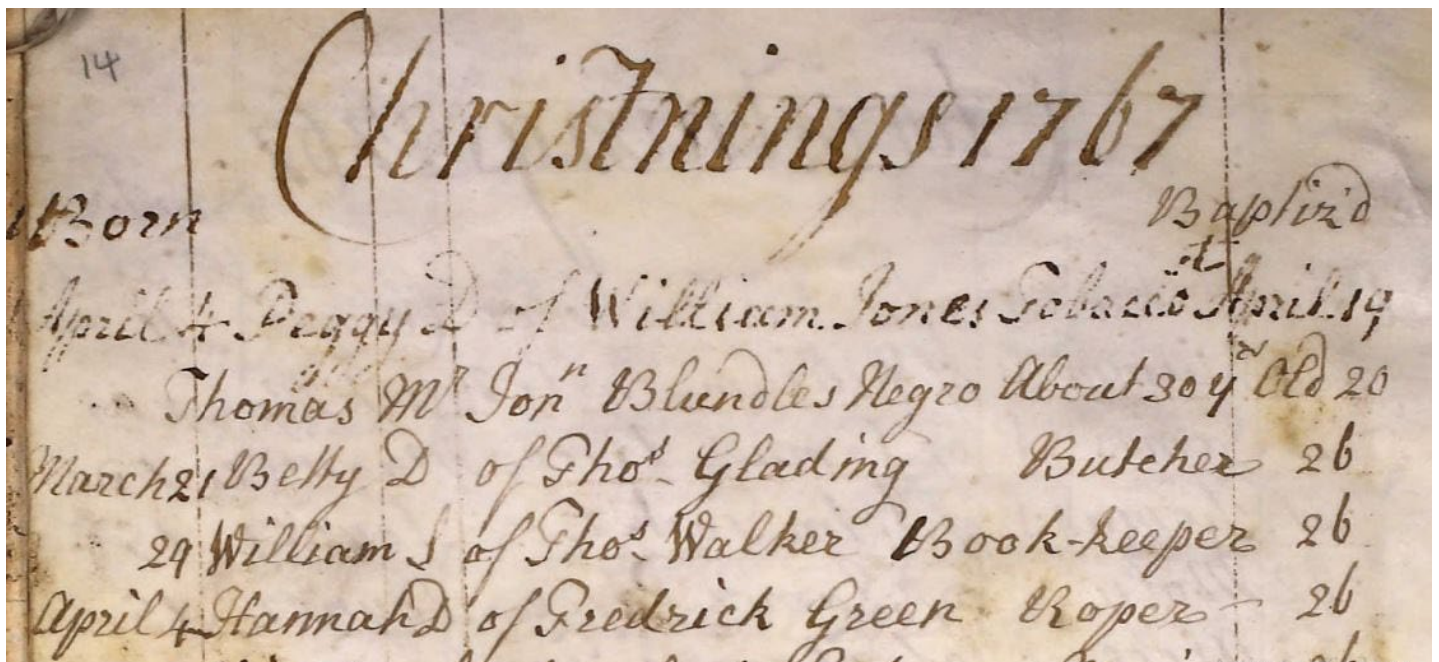 14
Christnings 1767
Born Baptiz'd
April 4 Peggy D of William Jones Tobacco^st April 19
Thomas M^r Jon^n Blundles Negro About 30 y^r Old 20
March 21 Betty D of Tho^s Glading Butcher 26
29 William S of Tho^s Walker Book-keeper 26
April 4 Hannah D of Fredrick Green Roper 26